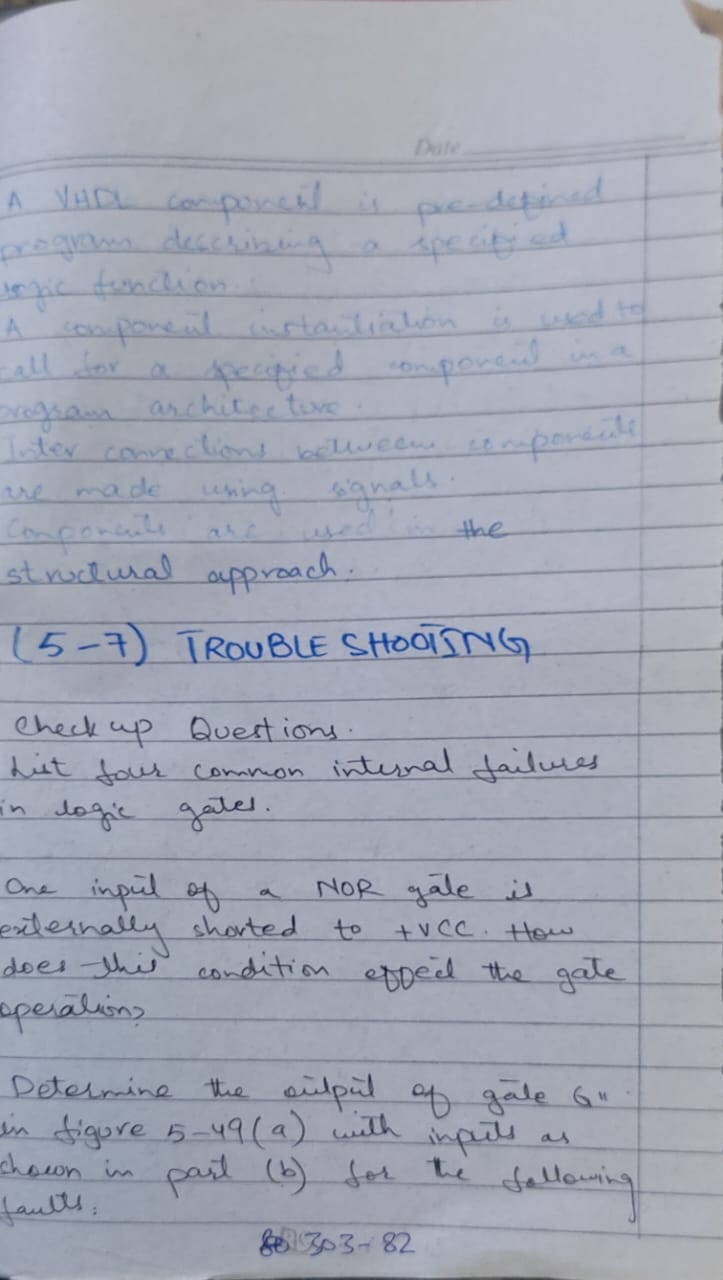 Date
A VHDL component is pre-defined
program describing a specified
logic function.
A component instantiation is used to
call for a specified component in a
program architecture.
Inter connections between components
are made using signals.
Components are used in the
structural approach.
(5-7) TROUBLE SHOOTING
Check up Questions.
List four common internal failures
in logic gates.
One input of a NOR gate is
externally shorted to +VCC. How
does this condition effect the gate
operation?
Determine the output of gate G"
in figure 5-49(a) with inputs as
shown in part (b) for the following
faults:
303-82